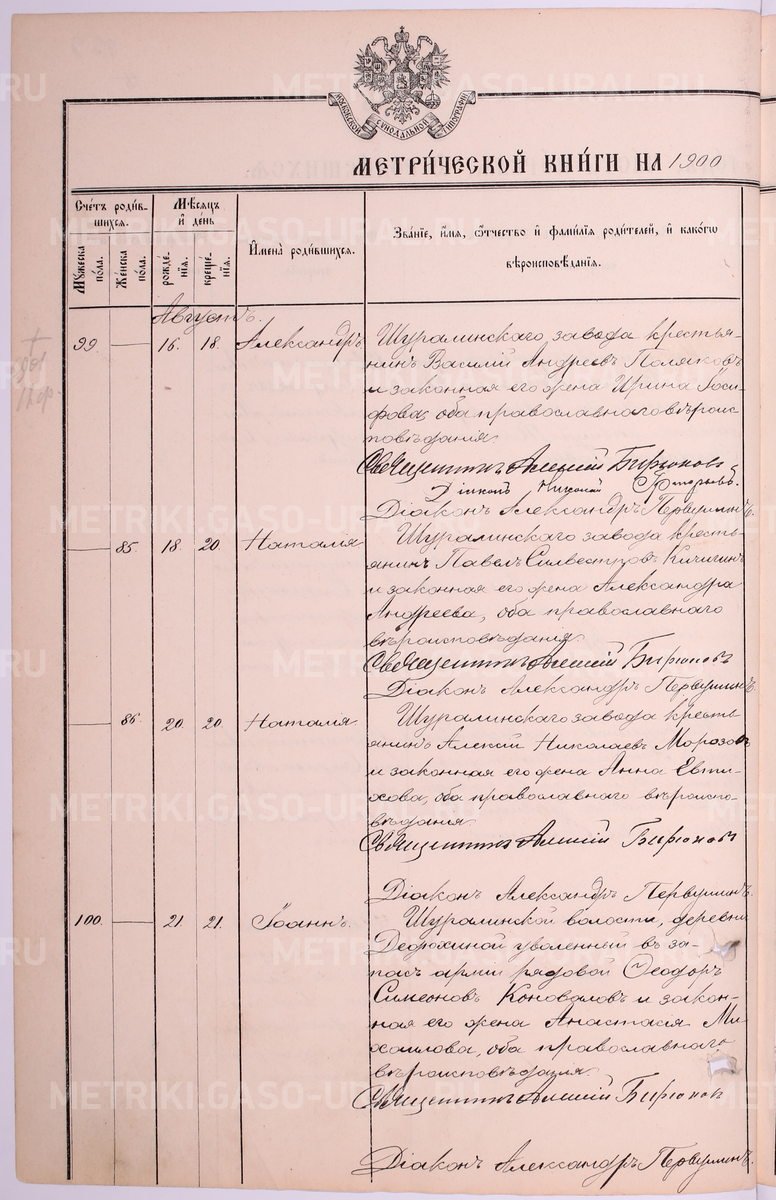 МОСКОВСКОЙ СѴНОДАЛЬНОЙ ТИПОГРАФІИ
МЕТРИ́ЧЕСКОЙ КНИ́ГИ НА 1900
Сче́тъ роди́в-
шихся.
Му́жеска по́ла.
Же́нска по́ла.
Мѣ́сяцъ
и҆ де́нь
рожде́-
нїѧ.
креще́-
нїѧ.
И҆мена̀ роди́вшихся.
Зва́нїе, и҆́мя, ѻ҆́тчество и҆ фами́лїя роди́телей, и҆ како́гѡ
вѣроисповѣ́данїѧ.
Августъ.
99. 16. 18. Александръ.
Шуралинскаго завода крестья-
нинъ Василій Андреевъ Поляковъ
и законная его жена Ирина Іоси-
фова, оба православнаго вѣроис-
повѣданія
Священникъ Алексій Бирюковъ
Діаконъ Александръ Первушинъ.
85. 18. 20. Наталія
Шуралинскаго завода кресть-
янинъ Павелъ Силвестровъ Кичигинъ
и законная его жена Александра
Андреева, оба православнаго
вѣроисповѣданія
Священникъ Алексій Бирюковъ
Діаконъ Александръ Первушинъ.
86. 20. 20. Наталія
Шуралинскаго завода кресть-
янинъ Алексій Николаевъ Морозовъ
и законная его жена Анна Евти-
хова, оба православнаго вѣроиспо-
вѣданія
Священникъ Алексій Бирюковъ
Діаконъ Александръ Первушинъ.
100. 21. 21. Іоаннъ.
Шуралинской волости, деревни
Дедюхиной уволенный въ за-
пасъ арміи рядовой Ѳеодоръ
Симеоновъ Коноваловъ и закон-
ная его жена Анастасія Ми-
хаилова, оба православнаго
вѣроисповѣданія
Священникъ Алексій Бирюковъ
Діаконъ Александръ Первушинъ.
METRIKI.GASO-URAL.RU